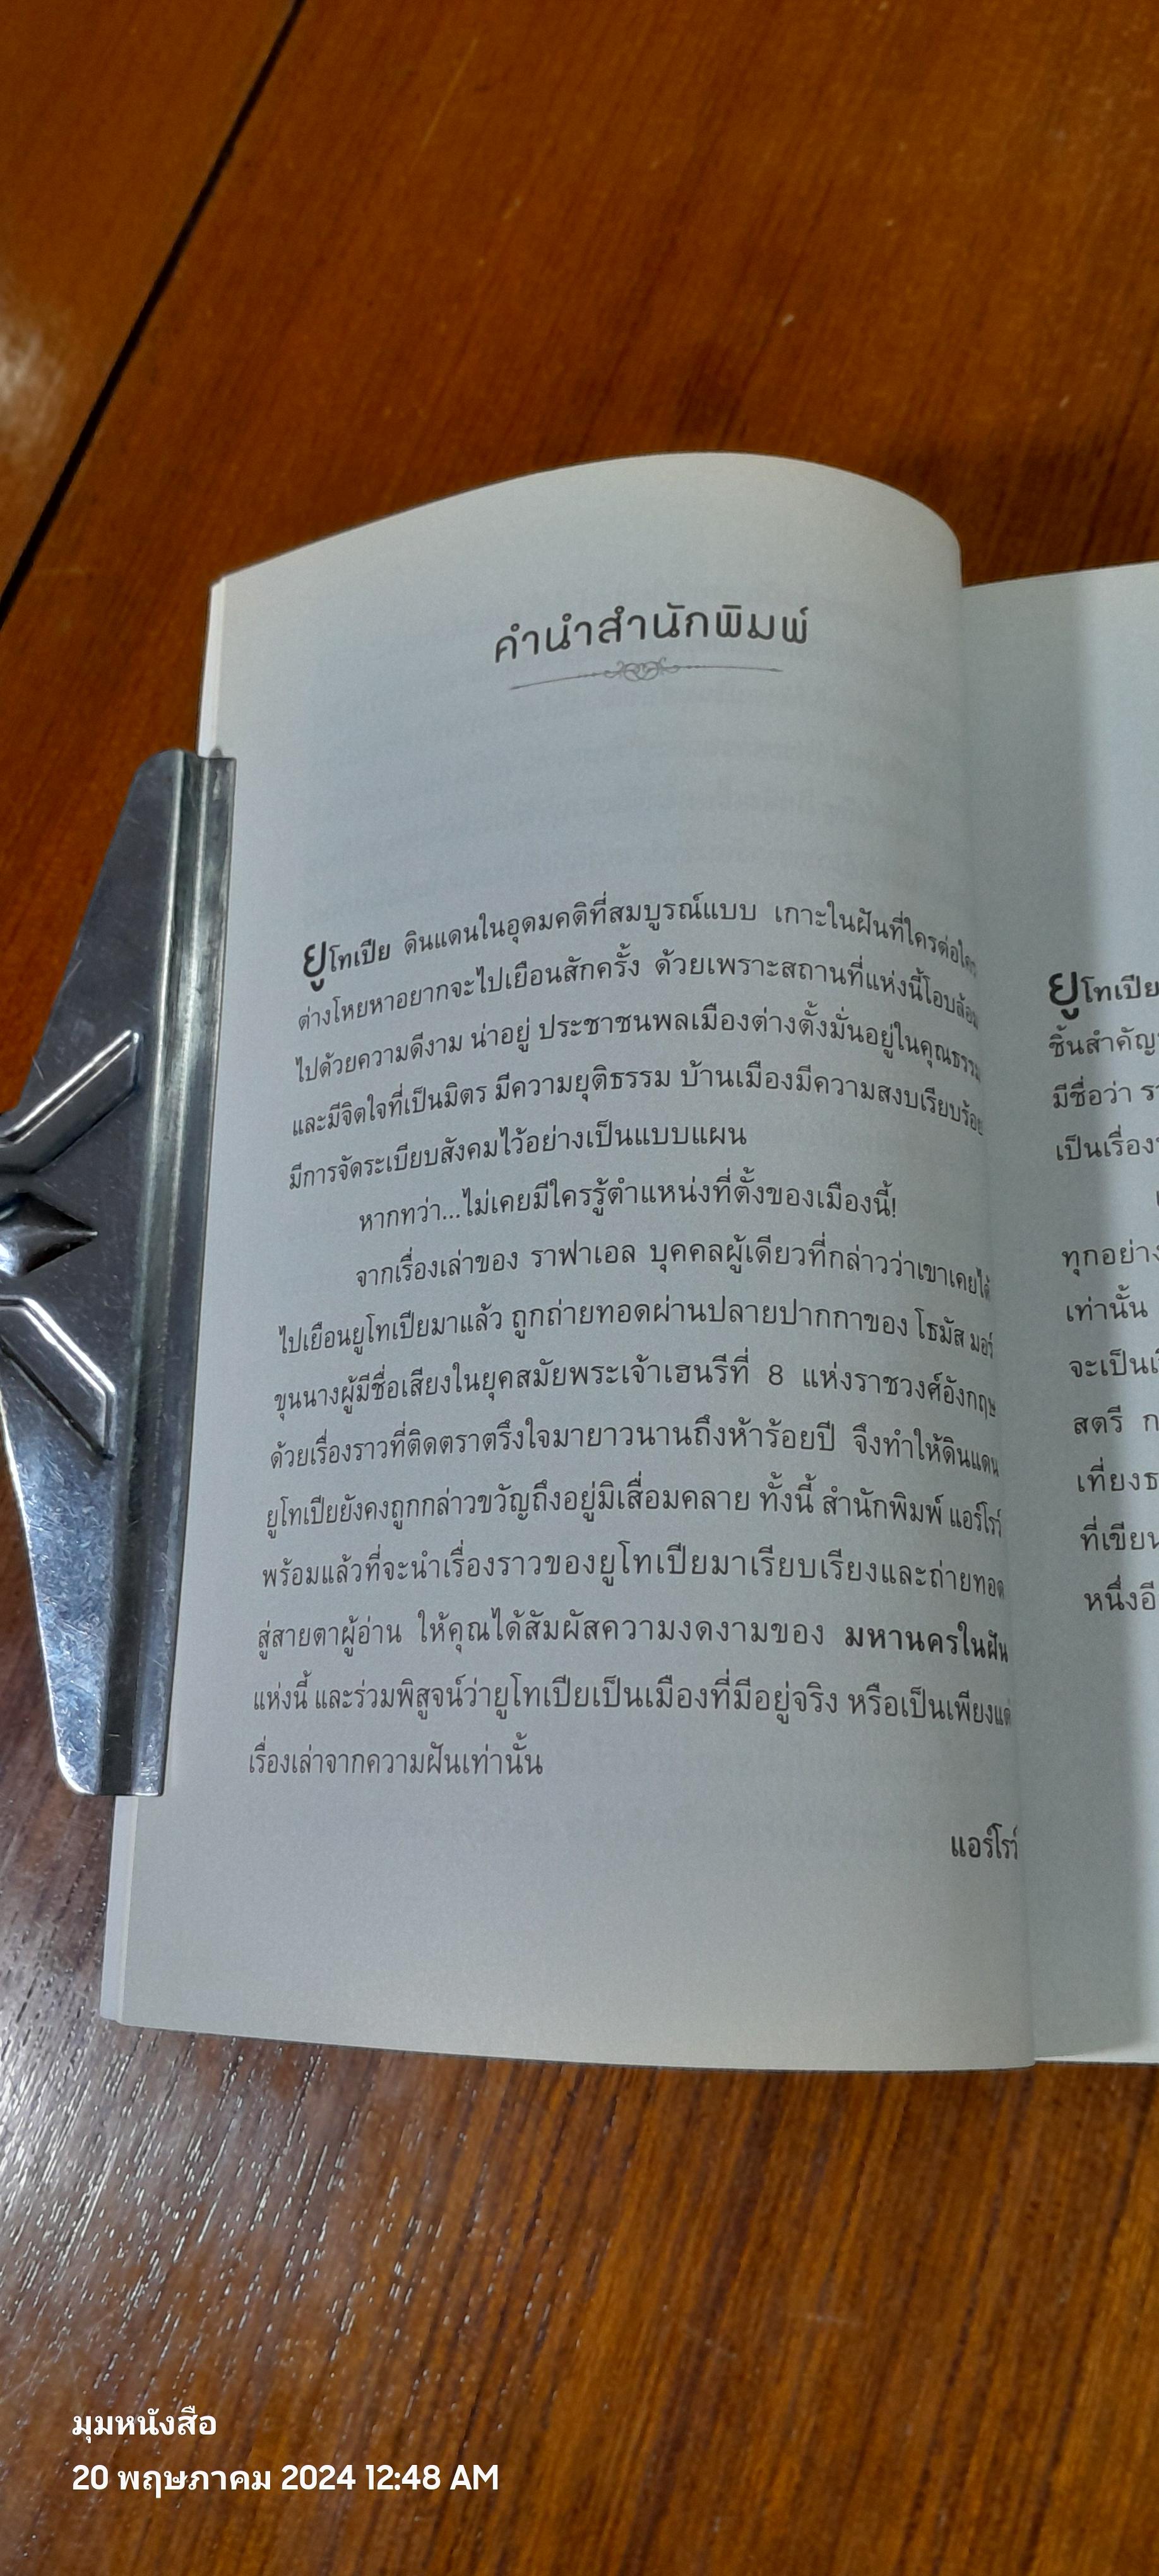 คำนำสำนักพิมพ์
ยูโทเปีย ดินแดนในอุดมคติที่สมบูรณ์แบบ เกาะในฝันที่ใครต่อใคร
ต่างโหยหาอยากจะไปเยือนสักครั้ง ด้วยเพราะสถานที่แห่งนี้โอบล้อม
ไปด้วยความดีงาม น่าอยู่ ประชาชนพลเมืองต่างตั้งมั่นอยู่ในคุณธรรม
และมีจิตใจที่เป็นมิตร มีความยุติธรรม บ้านเมืองมีความสงบเรียบร้อย
มีการจัดระเบียบสังคมไว้อย่างเป็นแบบแผน
หากทว่า...ไม่เคยมีใครรู้ตำแหน่งที่ตั้งของเมืองนี้!
จากเรื่องเล่าของ ราฟาเอล บุคคลผู้เดียวที่กล่าวว่าเขาเคยได้
ไปเยือนยูโทเปียมาแล้ว ถูกถ่ายทอดผ่านปลายปากกาของ โธมัส มอร์
ขุนนางผู้มีชื่อเสียงในยุคสมัยพระเจ้าเฮนรีที่ 8 แห่งราชวงศ์อังกฤษ
ด้วยเรื่องราวที่ติดตราตรึงใจมายาวนานถึงห้าร้อยปี จึงทำให้ดินแดน
ยูโทเปียยังคงถูกกล่าวขวัญถึงอยู่มิเสื่อมคลาย ทั้งนี้ สำนักพิมพ์ แอร์โรว์
พร้อมแล้วที่จะนำเรื่องราวของยูโทเปียมาเรียบเรียงและถ่ายทอด
สู่สายตาผู้อ่าน ให้คุณได้สัมผัสความงดงามของ มหานครในฝัน
แห่งนี้ และร่วมพิสูจน์ว่ายูโทเปียเป็นเมืองที่มีอยู่จริง หรือเป็นเพียงแค่
เรื่องเล่าจากความฝันเท่านั้น
แอร์โรว์
ยูโทเปีย
ชิ้นสำคัญ
มีชื่อว่า
เป็นเรื่อง
ทุกอย่าง
เท่านั้น
จะเป็น
สตรี
เที่ยง
ที่เขียน
หนึ่ง
มุมหนังสือ
20 พฤษภาคม 2024 12:48 AM